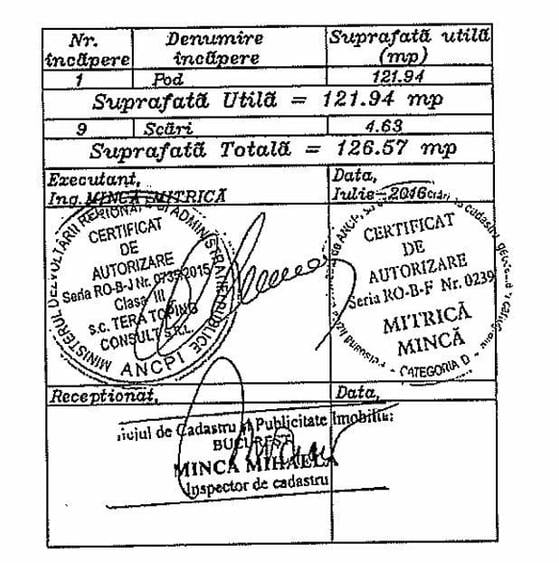 Nr. încăpere
Denumire încăpere
Suprafată utilă (mp)
1 Pod 121.94
Suprafată Utilă = 121.94 mp
9 Scări 4.63
Suprafată Totală = 126.57 mp
Executant,
Ing. MINCĂ MITRICĂ
Data,
Iulie-2016
MINISTERUL DEZVOLTĂRII REGIONALE ȘI ADMINISTRAȚIEI PUBLICE
CERTIFICAT
DE
AUTORIZARE
Seria RO-B-J Nr. 0735/2015
Clasa III
S.C. TERA TOPING
CONSULT S.R.L.
ANCPI
CERTIFICAT
DE
AUTORIZARE
Seria RO-B-F Nr. 0239
MITRICĂ
MINCĂ
CATEGORIA D
Recepționat,
Data,
de Cadastru și Publicitate Imobiliar
BUCUREȘTI
MINCĂ MIHAELA
Inspector de cadastru